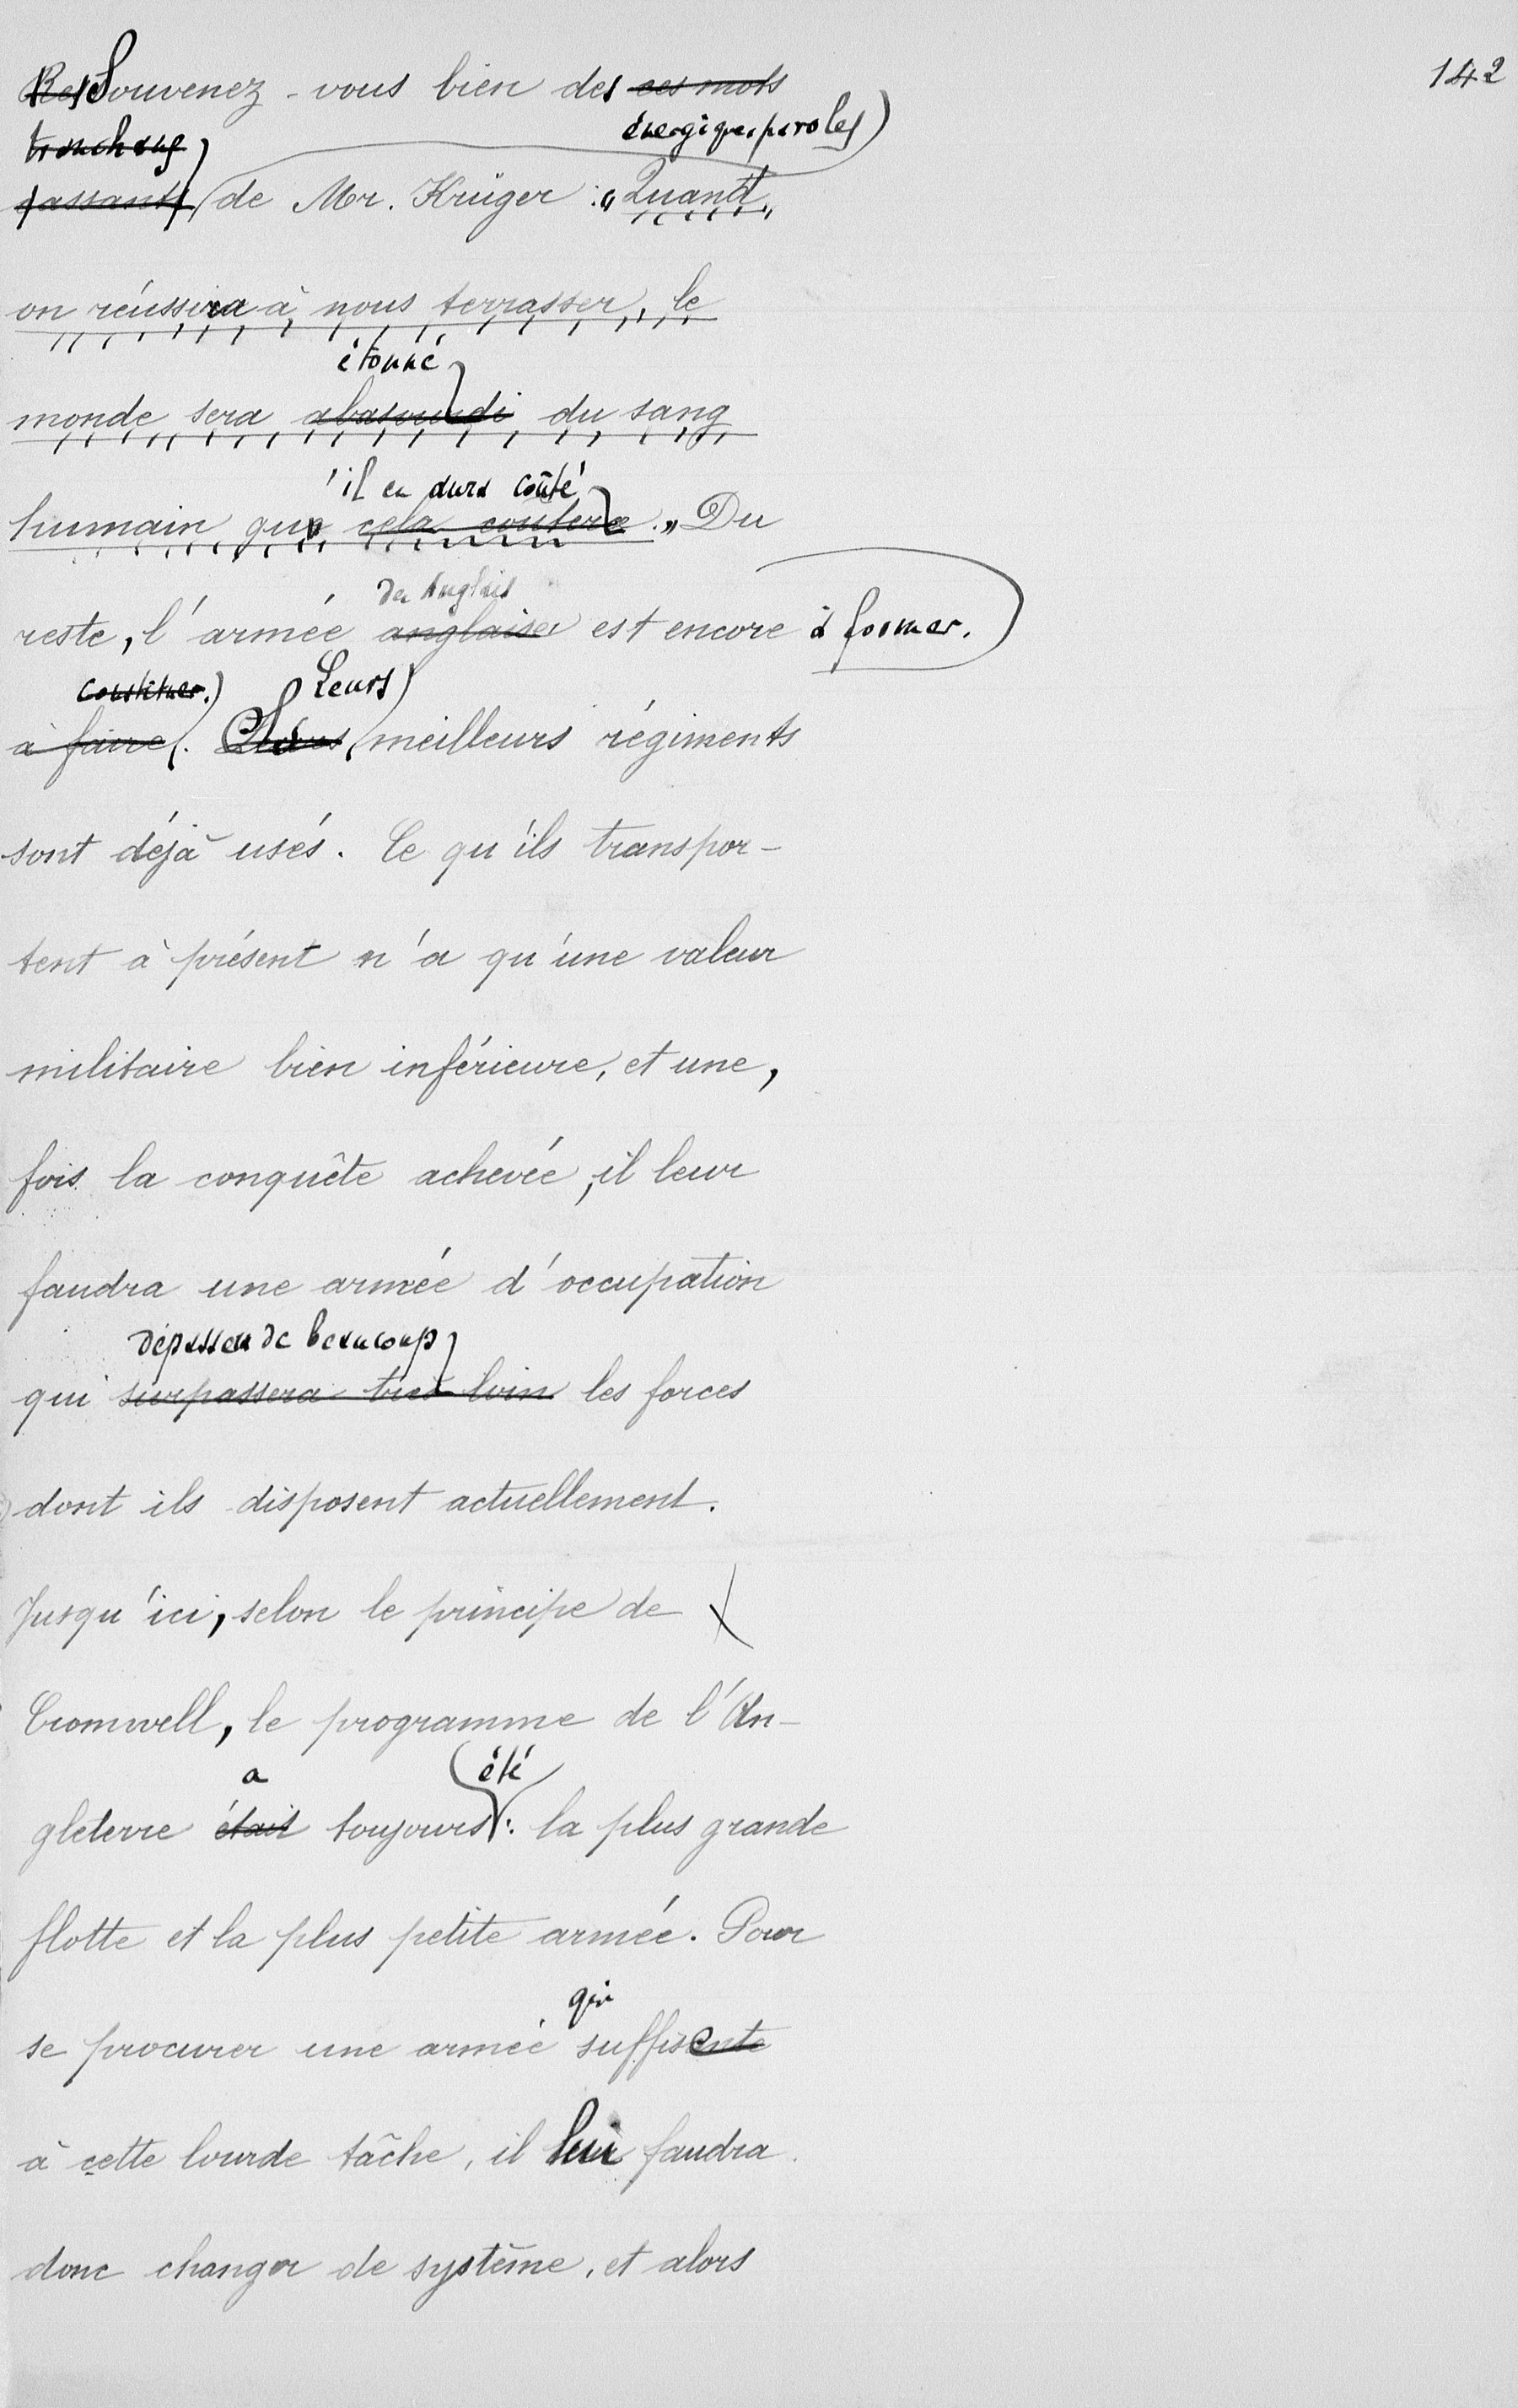 142
Ressouvenez-vous bien des ces mots
énergiques paroles)
tranchants
cassants (de Mr. Krüger : „Quand
on réussira à nous terrasser, le
étonné
monde sera abasourdi du sang
'il en aura coûté
humain qu cela coutera." Du
des Anglais
reste, l'armée anglaise est encore à former.
constituer.) Leurs)
à faire. meilleurs régiments
sont déjà usés. Ce qu'ils transpor-
tent à présent n'a qu'une valeur
militaire bien inférieure, et une,
fois la conquête achevée, il leur
faudra une armée d'occupation
dépassera de beaucoup
qui surpassera très loin les forces
dont ils disposent actuellement.
Jusqu'ici, selon le principe de
Cromwell, le programme de l'An-
a été
gleterre était toujours : la plus grande
flotte et la plus petite armée. Pour
qui
se procurer une armée suffisente
à cette lourde tâche, il lui faudra
donc changer de système, et alors